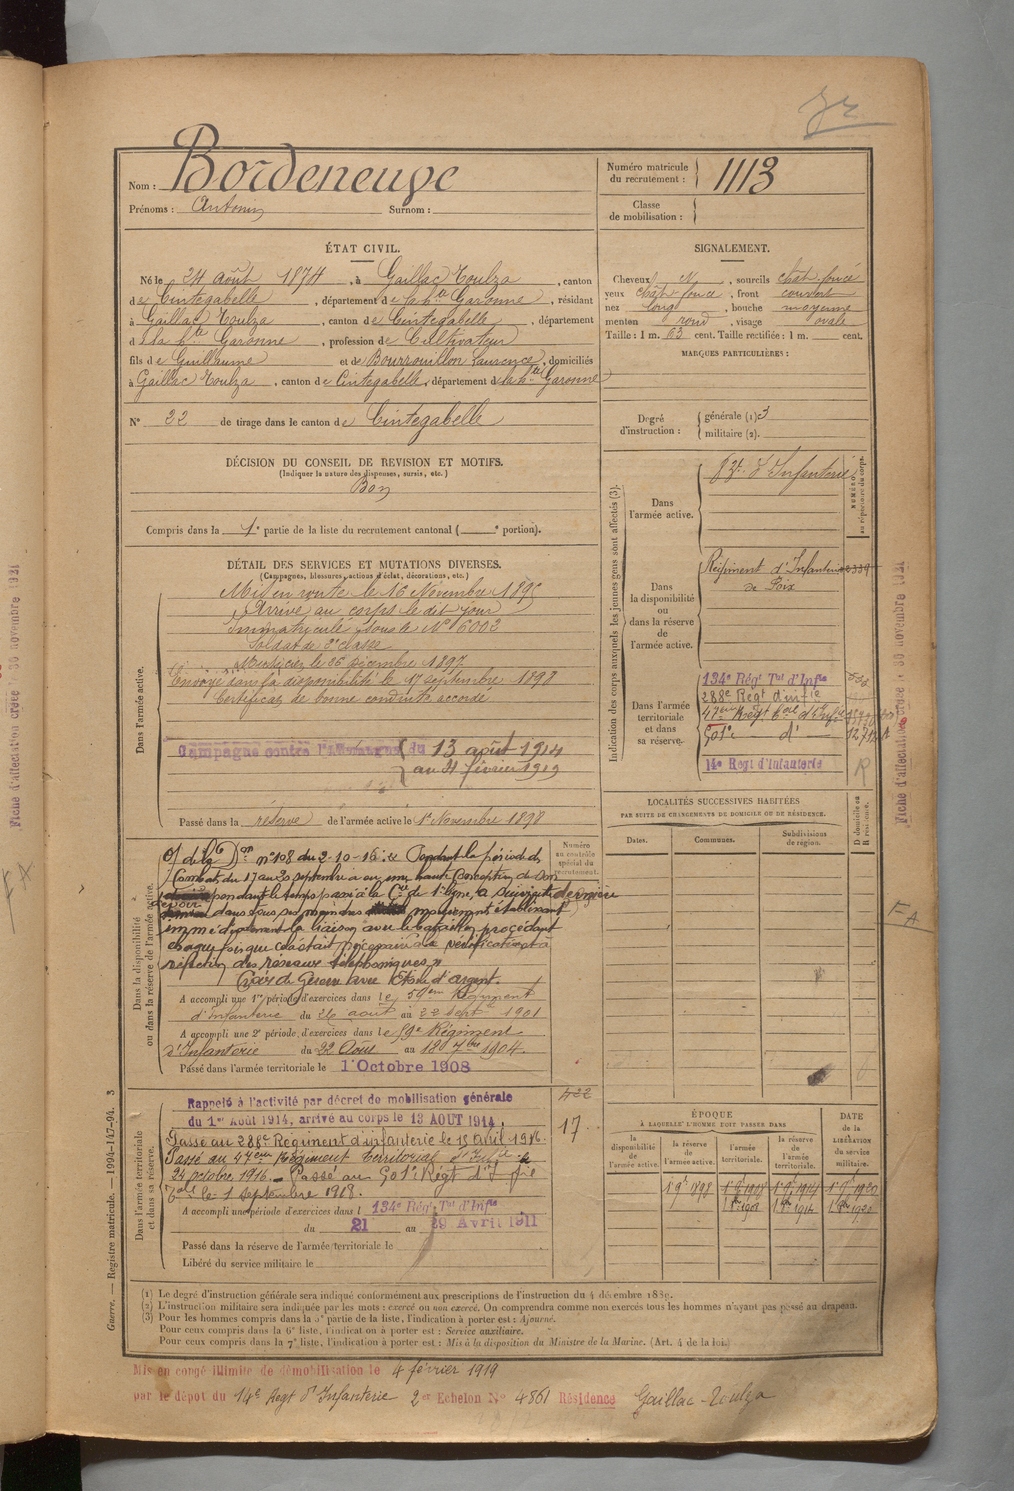 Nom : Bordeneuve
Prénoms : Antonin Surnom :
Numéro matricule du recrutement : 1113
Classe de mobilisation :
ÉTAT CIVIL.
Né le 24 août 1874, à Gaillac Toulza, canton
de Cintegabelle, département de la hte Garonne, résidant
à Gaillac Toulza, canton de Cintegabelle, département
d la hte Garonne, profession de Cultivateur
fils de Guillaume et de Bourrouillon Laurence, domiciliés
à Gaillac Toulza, canton de Cintegabelle, département de la hte Garonne
N° 22 de tirage dans le canton de Cintegabelle
SIGNALEMENT.
Cheveux N, sourcils chât. foncé
yeux chât foncé, front couvert
nez long, bouche moyenne
menton rond, visage ovale
Taille : 1 m. 63 cent. Taille rectifiée : 1 m. cent.
MARQUES PARTICULIÈRES :
Degré d'instruction : générale (1) 3
militaire (2).
DÉCISION DU CONSEIL DE REVISION ET MOTIFS.
(Indiquer la nature des dispenses, sursis, etc.)
Bon
Compris dans la 1e partie de la liste du recrutement cantonal ( e portion).
DÉTAIL DES SERVICES ET MUTATIONS DIVERSES.
(Campagnes, blessures, actions d'éclat, décorations, etc.)
Dans l'armée active.
Mis en route le 16 Novembre 1895
Arrivé au corps le dit jour
Immatriculé sous le N° 6002
Soldat de 2e classe
Musicien le 26 décembre 1897
Envoyé dans la disponibilité le 17 septembre 1898
Certificat de bonne conduite accordé
Campagne contre l'Allemagne du 13 août 1914
au février 1919
Passé dans la réserve de l'armée active le 1er Novembre 1898
Indication des corps auxquels les jeunes gens sont affectés (3).
NUMÉRO au répertoire du corps.
Dans l'armée active.
d'Infanterie
Dans la disponibilité ou dans la réserve de l'armée active.
Régiment d'Infanterie
de Foix
Dans l'armée territoriale et dans sa réserve.
134e Régt Tal d'Infie
288e Régt d'infie
47ème Régt
14e Regt d'Infanterie
LOCALITÉS SUCCESSIVES HABITÉES
PAR SUITE DE CHANGEMENTS DE DOMICILE OU DE RÉSIDENCE.
Dates. Communes. Subdivisions de région. D domicile ou R résidence.
Dans la disponibilité ou dans la réserve de l'armée active.
Numéro au contrôle spécial du recrutement.
n° 108 du 2-10-16 : « Pendant la période de
Combat du 17 au 20 septembre a eu une haute conception de son
devoir pendant le temps passé à la Cie de 1e ligne, a suivi cette dernière
dans tous ses moindres mouvements établissant
la liaison avec le bataillon procédant
chaque fois que c'était nécessaire à la vérification et à
réfection des réseaux téléphoniques »
Croix de Guerre avec Etoile d'argent.
A accompli une 1re période d'exercices dans le 59ème Régiment
d'Infanterie du 26 août au 22 Septe 1901
A accompli une 2e période d'exercices dans le 59e Régiment
d'Infanterie du 22 Août au 18 7bre 1904.
Passé dans l'armée territoriale le 1er Octobre 1908
Dans l'armée territoriale et dans sa réserve.
Rappelé à l'activité par décret de mobilisation générale
du 1er Août 1914, arrivé au corps le 13 AOUT 1914.
Passé au 288e Régiment d'infanterie le 15 Avril 1916.
Passé au 47ème Régiment territorial d'Infie le
24 octobre 1916. Passé au Régt d'Infie
le 1 septembre 1918.
A accompli une période d'exercices dans l 134e Régt Tal d'Infie
du 21 au 29 Avril 1911
Passé dans la réserve de l'armée territoriale le
Libéré du service militaire le
422
17
ÉPOQUE
À LAQUELLE L'HOMME DOIT PASSER DANS
la disponibilité de l'armée active. la réserve de l'armée active. l'armée territoriale. la réserve de l'armée territoriale.
DATE de la LIBÉRATION du service militaire.
(1) Le degré d'instruction générale sera indiqué conformément aux prescriptions de l'instruction du 4 décembre 1889.
(2) L'instruction militaire sera indiquée par les mots : exercé ou non exercé. On comprendra comme non exercés tous les hommes n'ayant pas passé au drapeau.
(3) Pour les hommes compris dans la 5e partie de la liste, l'indication à porter est : Ajourné.
Pour ceux compris dans la 6e liste, l'indication à porter est : Service auxiliaire.
Pour ceux compris dans la 7e liste, l'indication à porter est : Mis à la disposition du Ministre de la Marine. (Art. 4 de la loi.)
Guerre. — Registre matricule. — 1994-147-94. 3
Mis en congé illimité de démobilisation le 4 février 1919
par le dépôt du 14e Regt d'Infanterie 2e Echelon N° 4861 Résidence Gaillac-Toulza
Fiche d'affectation créée le 30 novembre 1921
FA